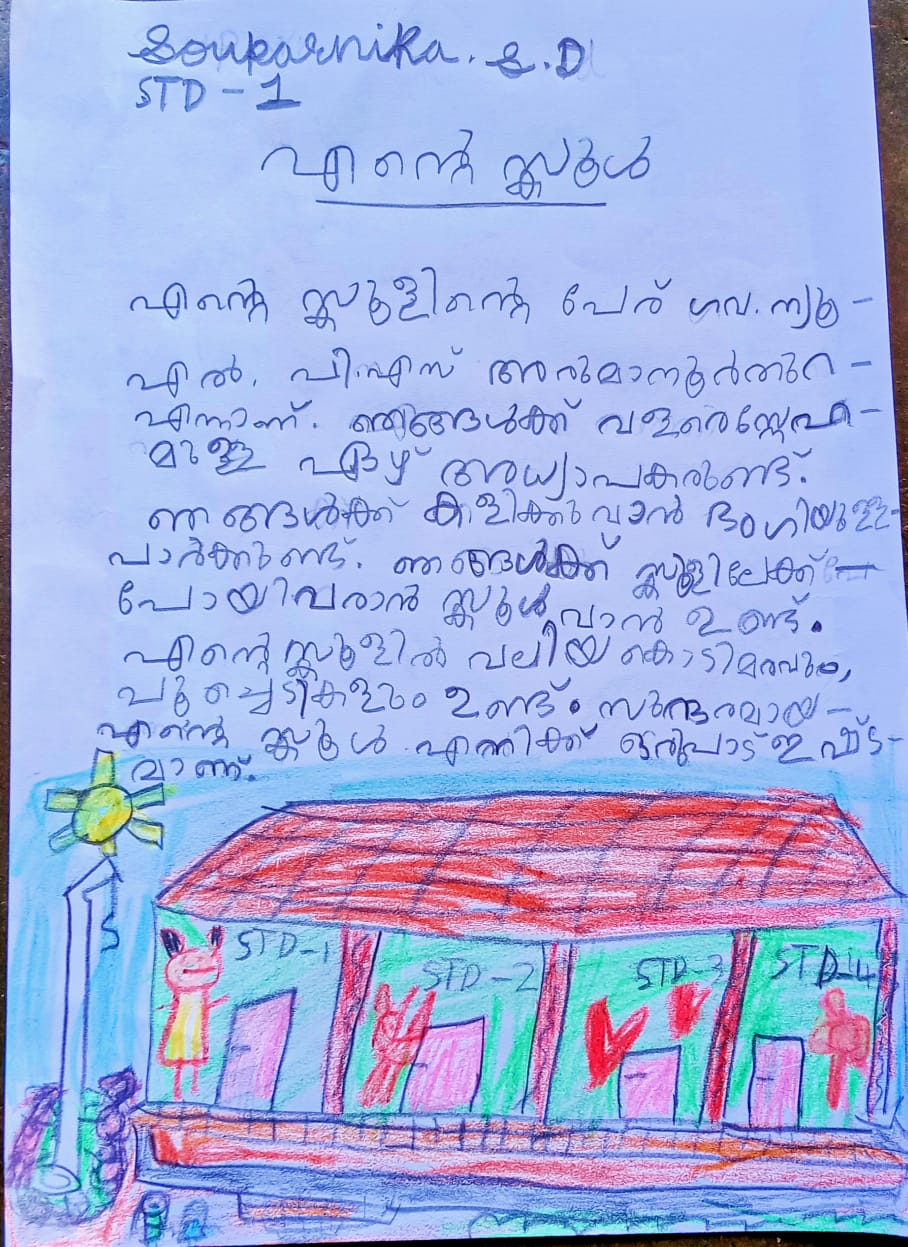 Souparnika. S.D
STD - 1
എന്റെ സ്കൂൾ
എന്റെ സ്കൂളിന്റെ പേര് ഗവ. ന്യൂ -
എൽ. പി.എസ് അരുമാനൂർതുറ -
എന്നാണ്. ഞങ്ങൾക്ക് വളരെസ്നേഹ -
മുള്ള ഏഴ് അധ്യാപകരുണ്ട്.
ഞങ്ങൾക്ക് കളിക്കുവാൻ ഭംഗിയുള്ള -
പാർക്കുണ്ട്. ഞങ്ങൾക്ക് സ്കൂളിലേക്ക് -
പോയിവരാൻ സ്കൂൾ വാൻ ഉണ്ട്.
എന്റെ സ്കൂളിൽ വലിയ കൊടിമരവും,
പൂച്ചെടികളും ഉണ്ട്. സുന്ദരമായ -
എന്റെ സ്കൂൾ എനിക്ക് ഒരുപാട് ഇഷ്ട -
മാണ്.
STD-1 STD-2 STD-3 STD-4